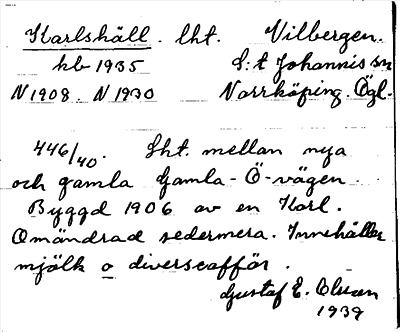 Karlshäll. lht. Vilbergen.
kb 1935 S:t Johannis sn
N 1908. N 1930 Norrköping. Ögl.
446/40. Lht. mellan nya
och gamla Gamla-Ö-vägen.
Byggd 1906 av en Karl.
Omändrad sedermera. Innehåller
mjölk o diverseaffär.
Gustaf E. Olsson
1939